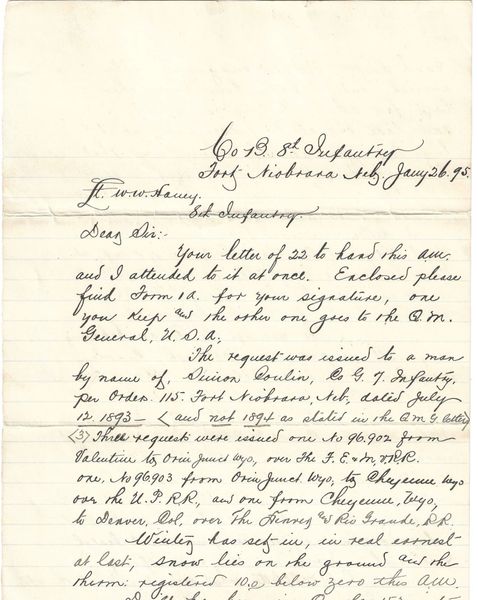 Co B. 8th Infantry
Fort Niobrara Neb. Jany 26. 95.
Lt. W. W. Haney.
8th Infantry.
Dear Sir:-
Your letter of 22 to hand this a.m.
and I attended to it at once. Enclosed please
find Form 1a. for your signature, one
you keep and the other one goes to the Q. M.
General, U. S. A.
The request was issued to a man
by name of, Simon Conlin, Co G. 7. Infantry.
per Order. 115. Fort Niobrara, Neb, dated July
12 1893 - (and not 1894 as stated in the Q M G letter)
(3) Three request were issued one No 96.902 from
Valentine to Orin Junct Wyo, over The F. E & M. V. R.R.
one. No 96903 from Orin Junct Wyo, to Cheyenne Wyo
over the U. P. RR, and one from Cheyenne, Wyo,
to Denver, Col. over The Denver and Rio Grande, R.R.
Winter has set in, in real earnest
at last, snow lies on the ground and the
therm: registered 10.0 below zero this a.m.